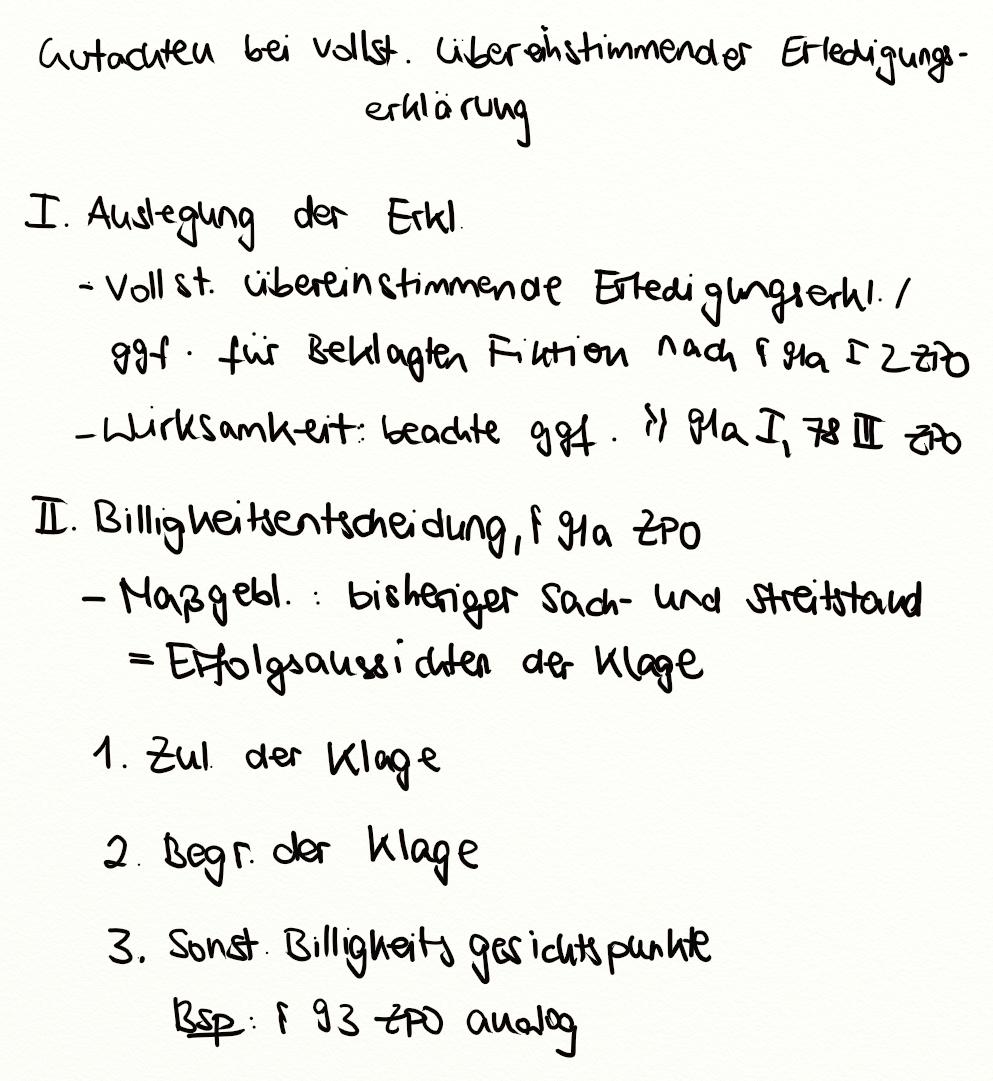 Gutachten bei vollst. übereinstimmender Erledigungs-
erklärung
I. Auslegung der Erkl.
- Vollst. übereinstimmende Erledigungserkl. /
ggf. für Beklagten Fiktion nach § 91a I 2 ZPO
- Wirksamkeit: beachte ggf. §§ 91a I, 78 III ZPO
II. Billigkeitsentscheidung, § 91a ZPO
- Maßgebl.: bisheriger Sach- und Streitstand
= Erfolgsaussichten der Klage
1. Zul. der Klage
2. Begr. der Klage
3. Sonst. Billigkeitsgesichtspunkte
Bsp: § 93 ZPO analog